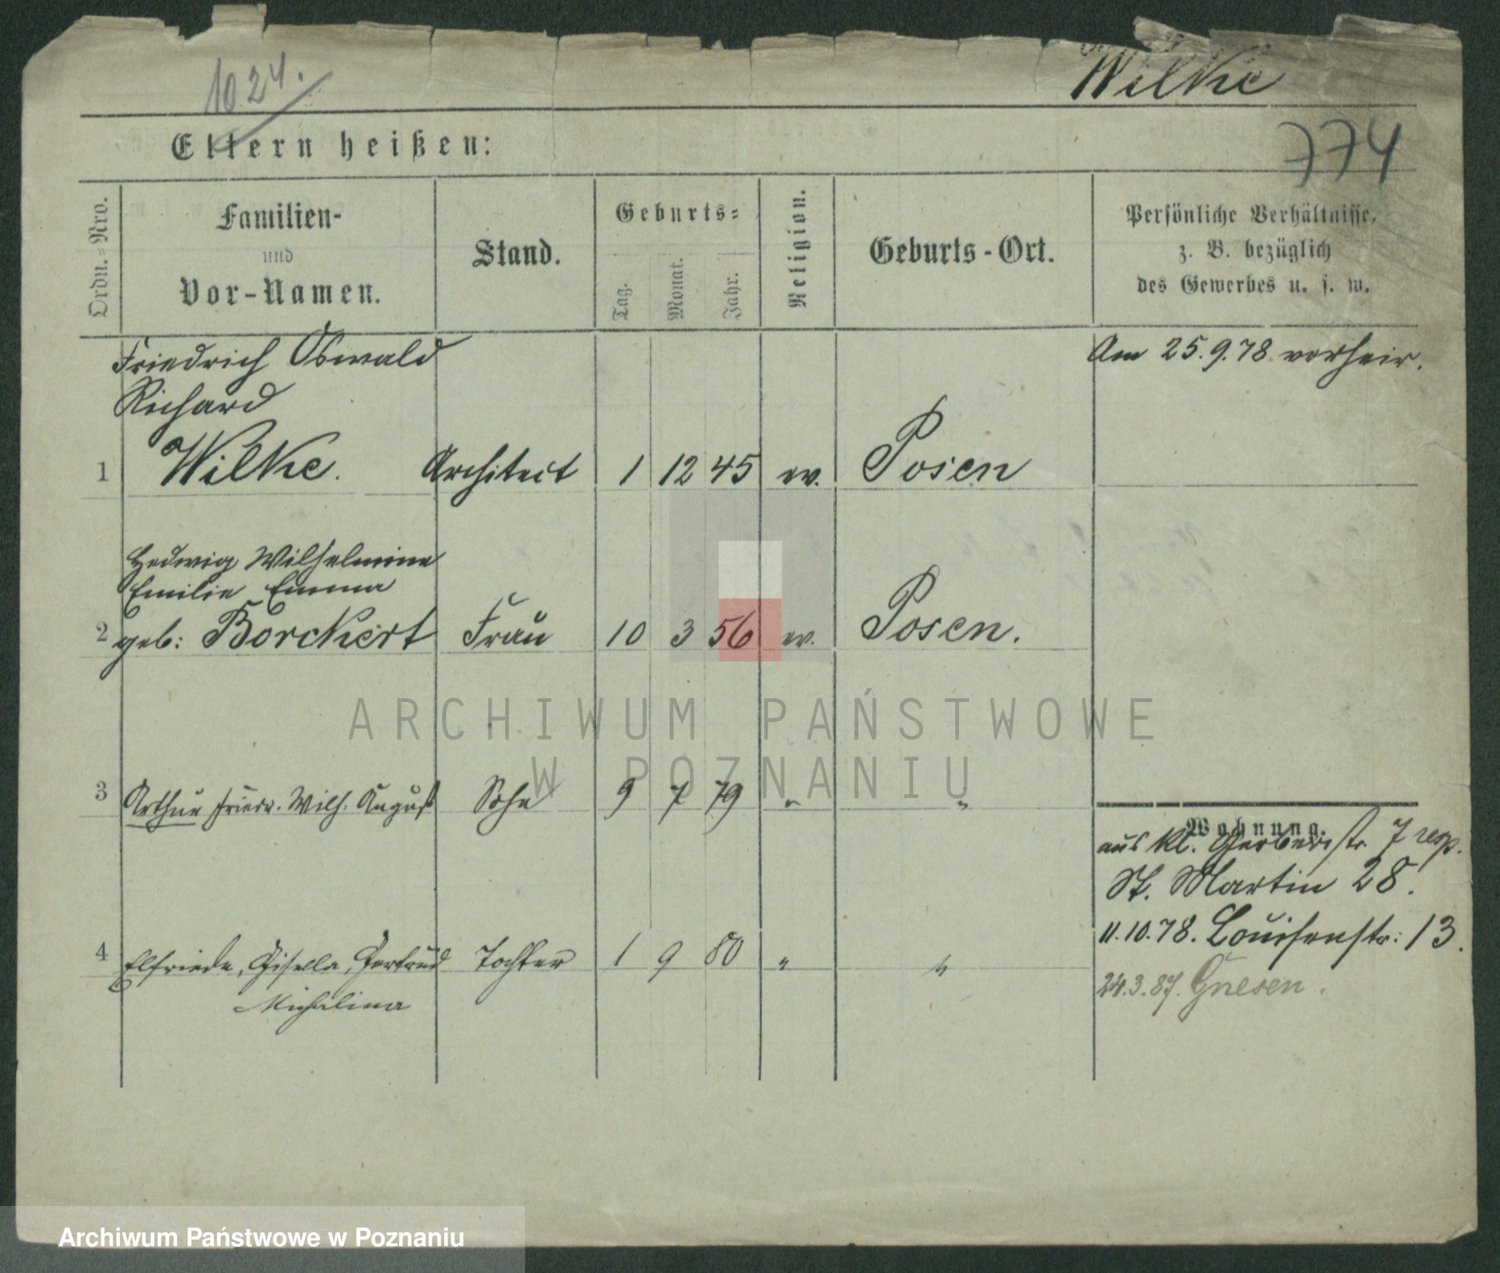 1024.
Wilke
774
Eltern heißen:
Ordn.-Nro.
Familien-
und
Vor-Namen.
Stand.
Geburts-
Tag.
Monat.
Jahr.
Religion.
Geburts-Ort.
Persönliche Verhältnisse,
z. B. bezüglich
des Gewerbes u. s. w.
Friedrich Oswald
Richard
1 Wilke. Architect 1 12 45 ev. Posen
Am 25.9.78 verheir.
Hedwig Wilhelmine
Emilie Emma
2 geb: Borckert Frau 10 3 56 ev. Posen.
ARCHIWUM PAŃSTWOWE
W POZNANIU
3 Arthur Friedr. Wilh. August Sohn 9 7 79 " "
Wohnung.
aus kl. Gerberstr 7 resp.
St. Martin 28.
11.10.78. Louisenstr: 13.
24.3.87. Gnesen.
4 Elfriede, Gisella, Gertrud Tochter 1 9 80 " "
Michalina
Archiwum Państwowe w Poznaniu